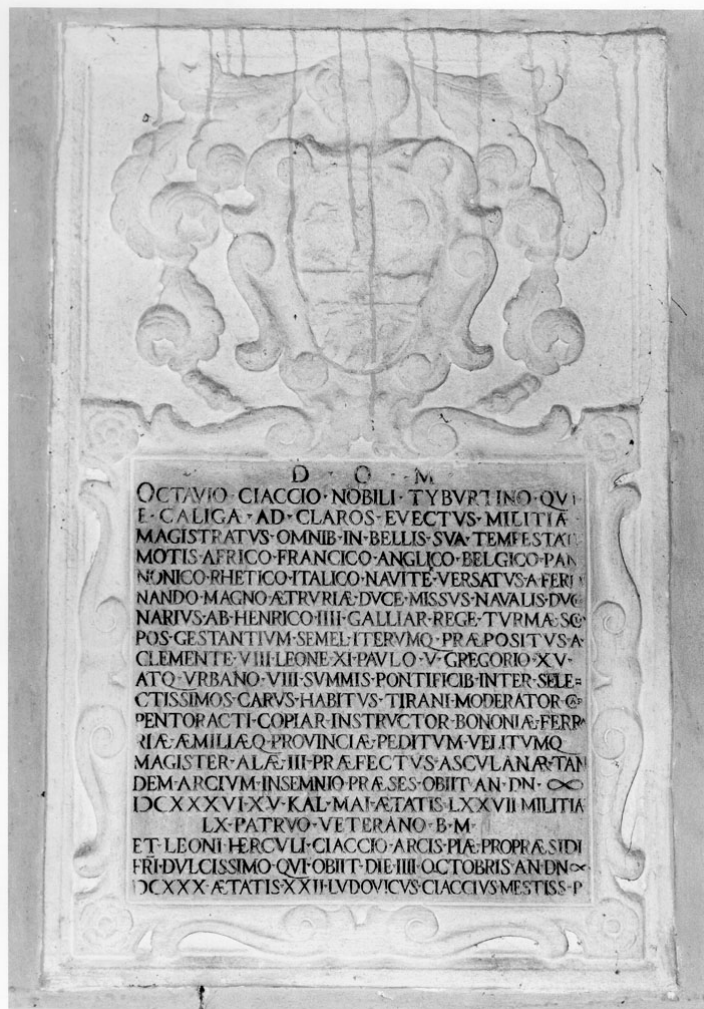 D · O · M
OCTAVIO · CIACCIO · NOBILI · TYBVRTINO · QVI
E · CALIGA · AD · CLAROS · EVECTVS · MILITIÆ
MAGISTRATVS · OMNIB · IN · BELLIS · SVA · TEMPESTAT
MOTIS · AFRICO · FRANCICO · ANGLICO · BELGICO · PAN
NONICO · RHETICO · ITALICO · NAVITE · VERSATVS · A · FER
NANDO · MAGNO · ÆTRVRIÆ · DVCE · MISSVS · NAVALIS · DVC
NARIVS · AB · HENRICO · IIII · GALLIAR · REGE · TVRMÆ · SC
POS · GESTANTIVM · SEMEL · ITERVMQ · PRÆPOSITVS · A ·
CLEMENTE · VIII · LEONE · XI · PAVLO · V · GREGORIO · XV ·
ATQ · VRBANO · VIII · SVMMIS · PONTIFICIB · INTER · SELE=
CTISSIMOS · CARVS · HABITVS · TIRANI · MODERATOR
PENTORACTI · COPIAR · INSTRVCTOR · BONONIÆ · FERR
RIÆ · ÆMILIÆQ · PROVINCIÆ · PEDITVM · VELITVMQ
MAGISTER · ALÆ · III · PRÆFECTVS · ASCVLANÆ · TAN
DEM · ARCIVM · INSEMNIO · PRÆSES · OBIIT · AN · DN · ∞
IƆCXXXVI · XV · KAL · MAI · ÆTATIS · LXXVII · MILITIÆ
LX · PATRVO · VETERANO · B · M ·
ET · LEONI · HERCVLI · CIACCIO · ARCIS · PIÆ · PROPRÆSIDI
FRI · DVLCISSIMO · QVI · OBIIT · DIE · IIII · OCTOBRIS · AN · DN ∞
IƆCXXX · ÆTATIS · XXII · LVDOVICVS · CIACCIVS · MESTISS · P